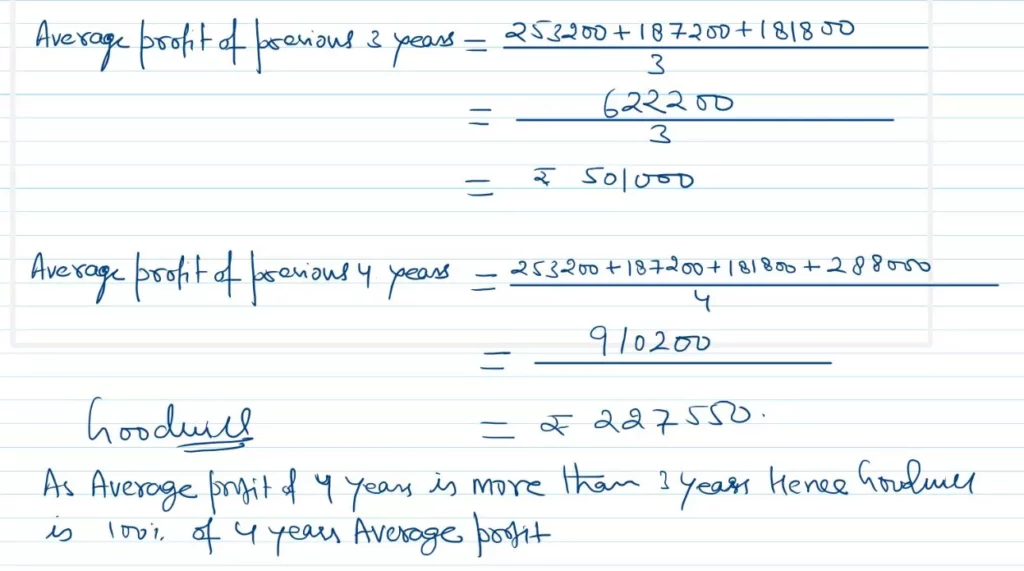 Average profit of previous 3 years = 253200+187200+181800
3
= 622200
3
= ₹ 501000
Average profit of previous 4 years = 253200+187200+181800+288000
4
= 910200
Goodwill = ₹ 227550.
As Average profit of 4 years is more than 3 years Hence Goodwill
is 100% of 4 years Average profit